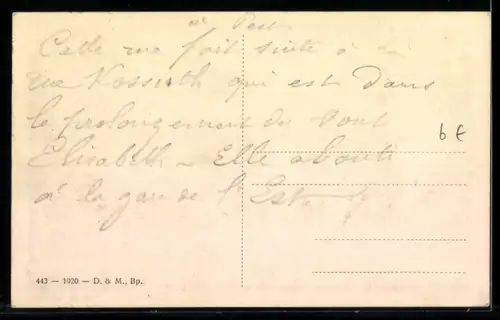 à Pest
Cette rue fait suite à la
rue Kossuth qui est dans
le prolongement du Pont
Elisabeth - Elle abouti
à la gare de l'Est
6 €
443 — 1920 — D. & M., Bp.